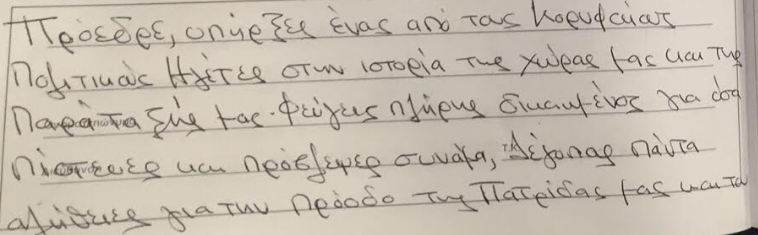 Πρόεδρε, υπήρξες ένας από τους Κορυφαίους
Πολιτικούς Ηγέτες στην ιστορία της χώρας μας και της
Παράταξής μας. Φεύγεις πλήρης δικαιωμένος για όσα
πίστεψες και πρόσφερες συνάμα, λέγοντας πάντα
αλήθειες για την πρόοδο της Πατρίδας μας και τα